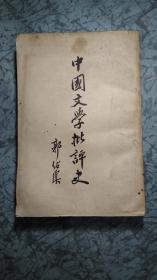 中國文學批評史
郭绍虞